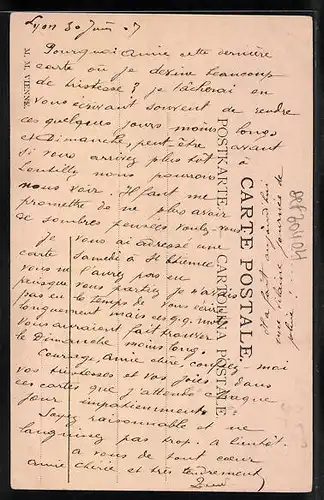 Lyon 30 Juin 07
Pourquoi Amie cette dernière
carte où je devine beaucoup
de tristesse ? je tâcherai en
vous écrivant souvent de rendre
ces quelques jours moins longs
et Dimanche, peut-être avant
si vous arrivez plus tôt à
nous pourrons
nous voir. Il faut me
promettre de ne plus avoir
de sombres pensées voulez-vous
Je vous ai adressé une
carte Samedi à St Etienne
vous ne l'aurez pas eu
puisque vous partiez je n'avais
pas eu le temps de vous écrire
longuement mais ces q.q. mots
vous auraient fait trouver
le Dimanche moins long.
Courage, Amie chère, contez-moi
vos tristesses et vos joies dans
ces cartes que j'attends chaque
jour impatiemment.
Soyez raisonnable et ne
languissez pas trop. à bientôt.
à vous de tout cœur
Amie chérie et très tendrement
Il a fait aujourd'hui
une vilaine journée de
pluie !
M. M. VIENNE
POSTKARTE
CARTOLINA POSTALE
CARTE POSTALE